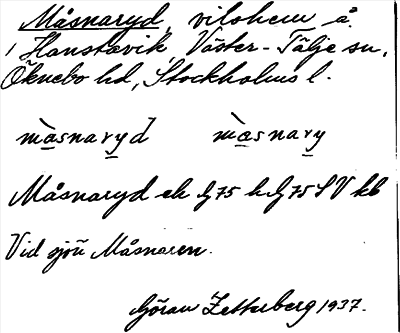 Måsnaryd, vilohem å
i Hanstavik Väster-Tälje sn,
Öknebo hd, Stockholms l.
màsnaryd màsnary
Måsnaryd ek hj 75 SV kb
Vid sjön Måsnaren.
Göran Zetterberg 1937.